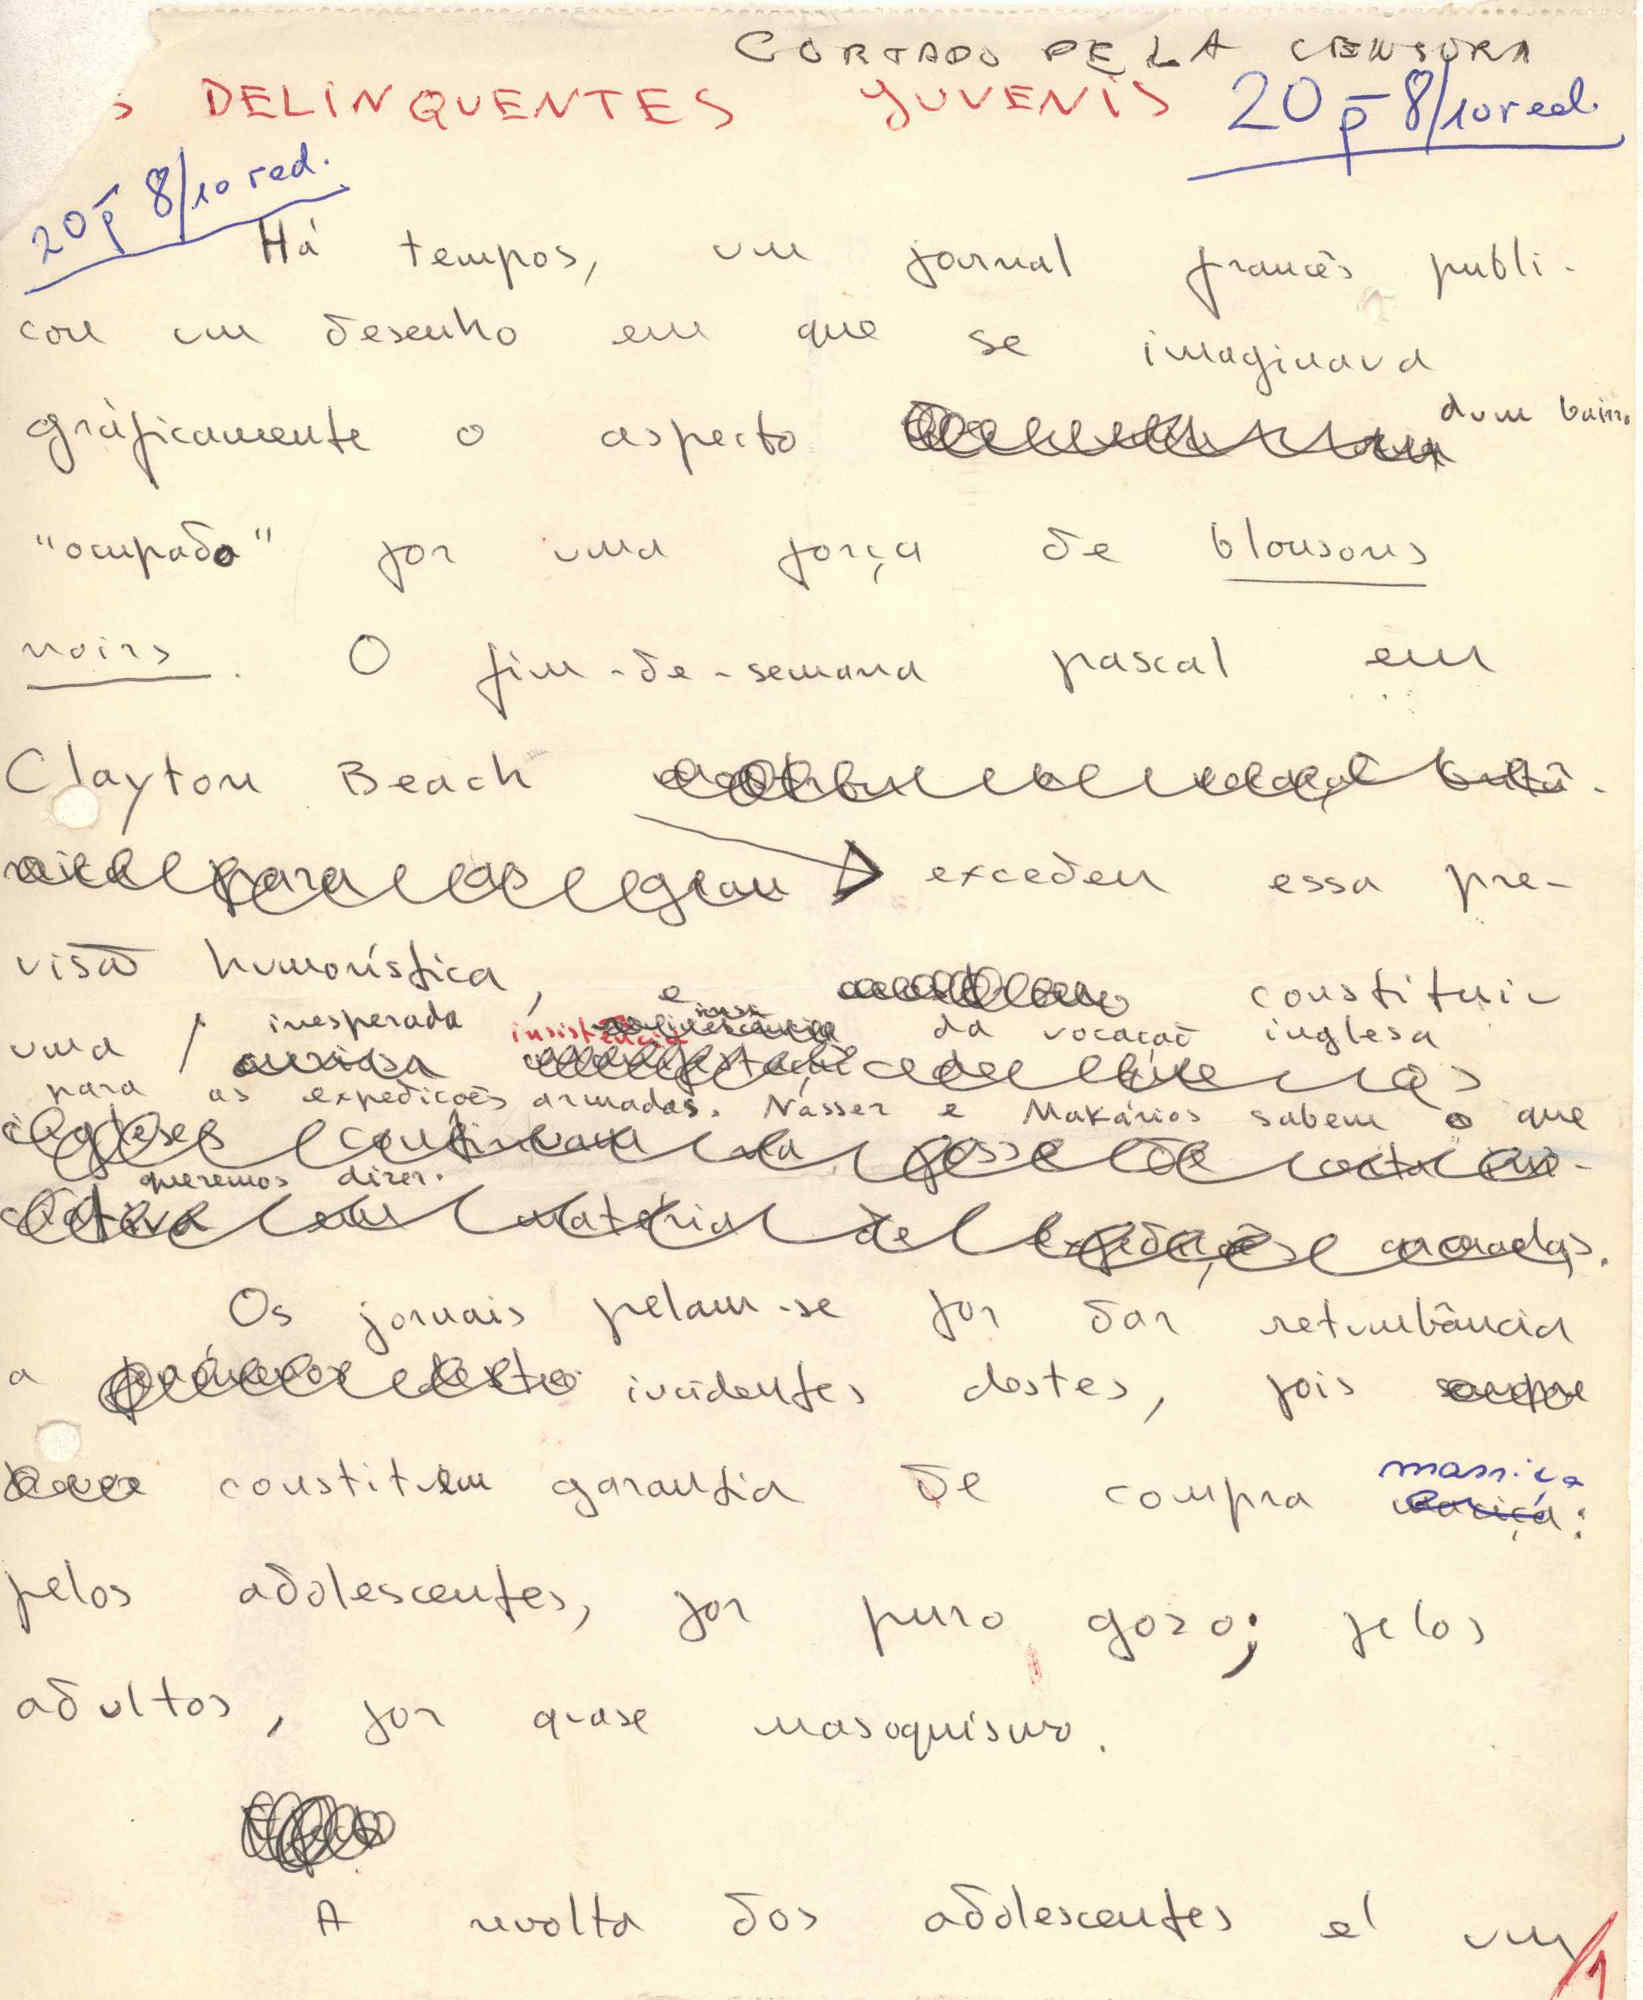 CORTADO PELA CENSURA
S DELINQUENTES JUVENIS
20 p 8/10 red.
20 p 8/10 red.
Há tempos, um jornal francês publi-
cou um desenho em que se imaginava
gràficamente o aspecto dum bairro
"ocupado" por uma força de blousons
noirs. O fim-de-semana pascal em
Clayton Beach
excedeu essa pre-
visão humorística, e constitui
uma inesperada insistência da vocação inglesa
para as expedições armadas. Nasser e Makários sabem o que
queremos dizer.
Os jornais pelam-se por dar retumbância
a incidentes destes, pois
constituem garantia de compra massiça:
pelos adolescentes, por puro gozo; pelos
adultos, por quase masoquismo.
A revolta dos adolescentes é um
/1